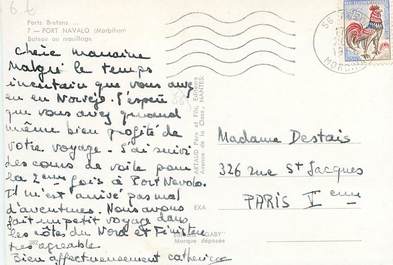 6 f
Ports Bretons ...
7. - PORT NAVALO (Morbihan)
Bateau au mouillage
Chère marraine
Malgré le temps
incertain que vous avez
eu en Norvège. J'espère
que vous avez quand
même bien profité de
votre voyage. J'ai suivi
des cours de voile pour
la 2ème fois à Port Navalo.
Il m'est arrivé pas mal
d'aventures. Nous avons
fait un petit voyage dans
les côtes du Nord et Finistère
très agréable.
Bien affectueusement catherine
ARTAUD Père et Fils, Editeurs
Avenue de la Close, NANTES
EXA
"GABY"
Marque déposée
56
MORBIHAN
Madame Destais
326 rue St Jacques
PARIS V eme